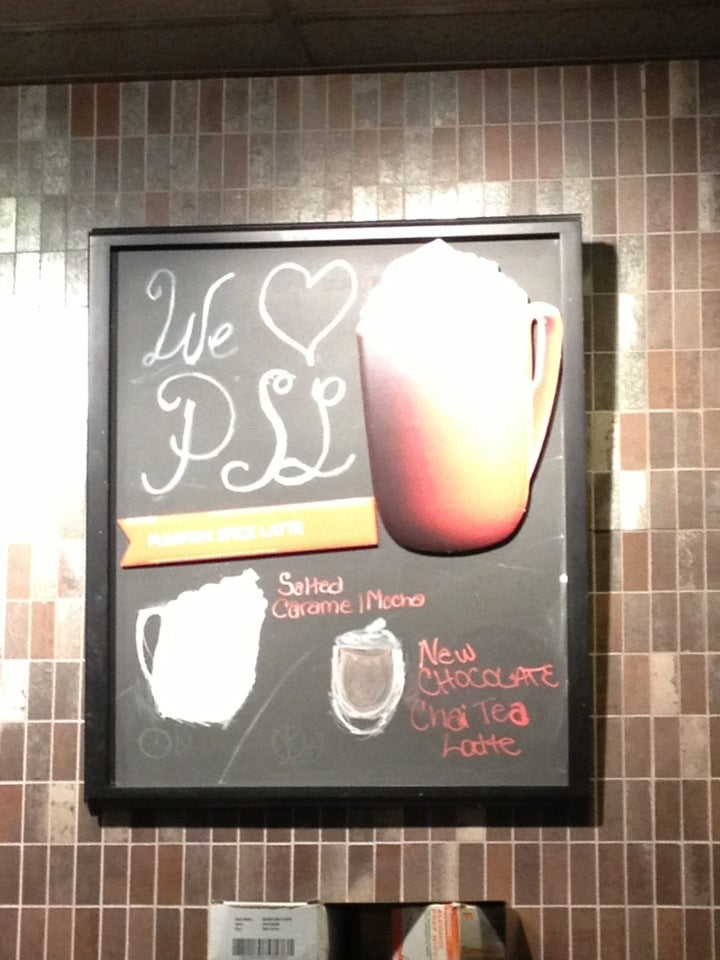 We ♡
PSL
PUMPKIN SPICE LATTE
Salted
Caramel Mocha
New
CHOCOLATE
Chai Tea
Latte